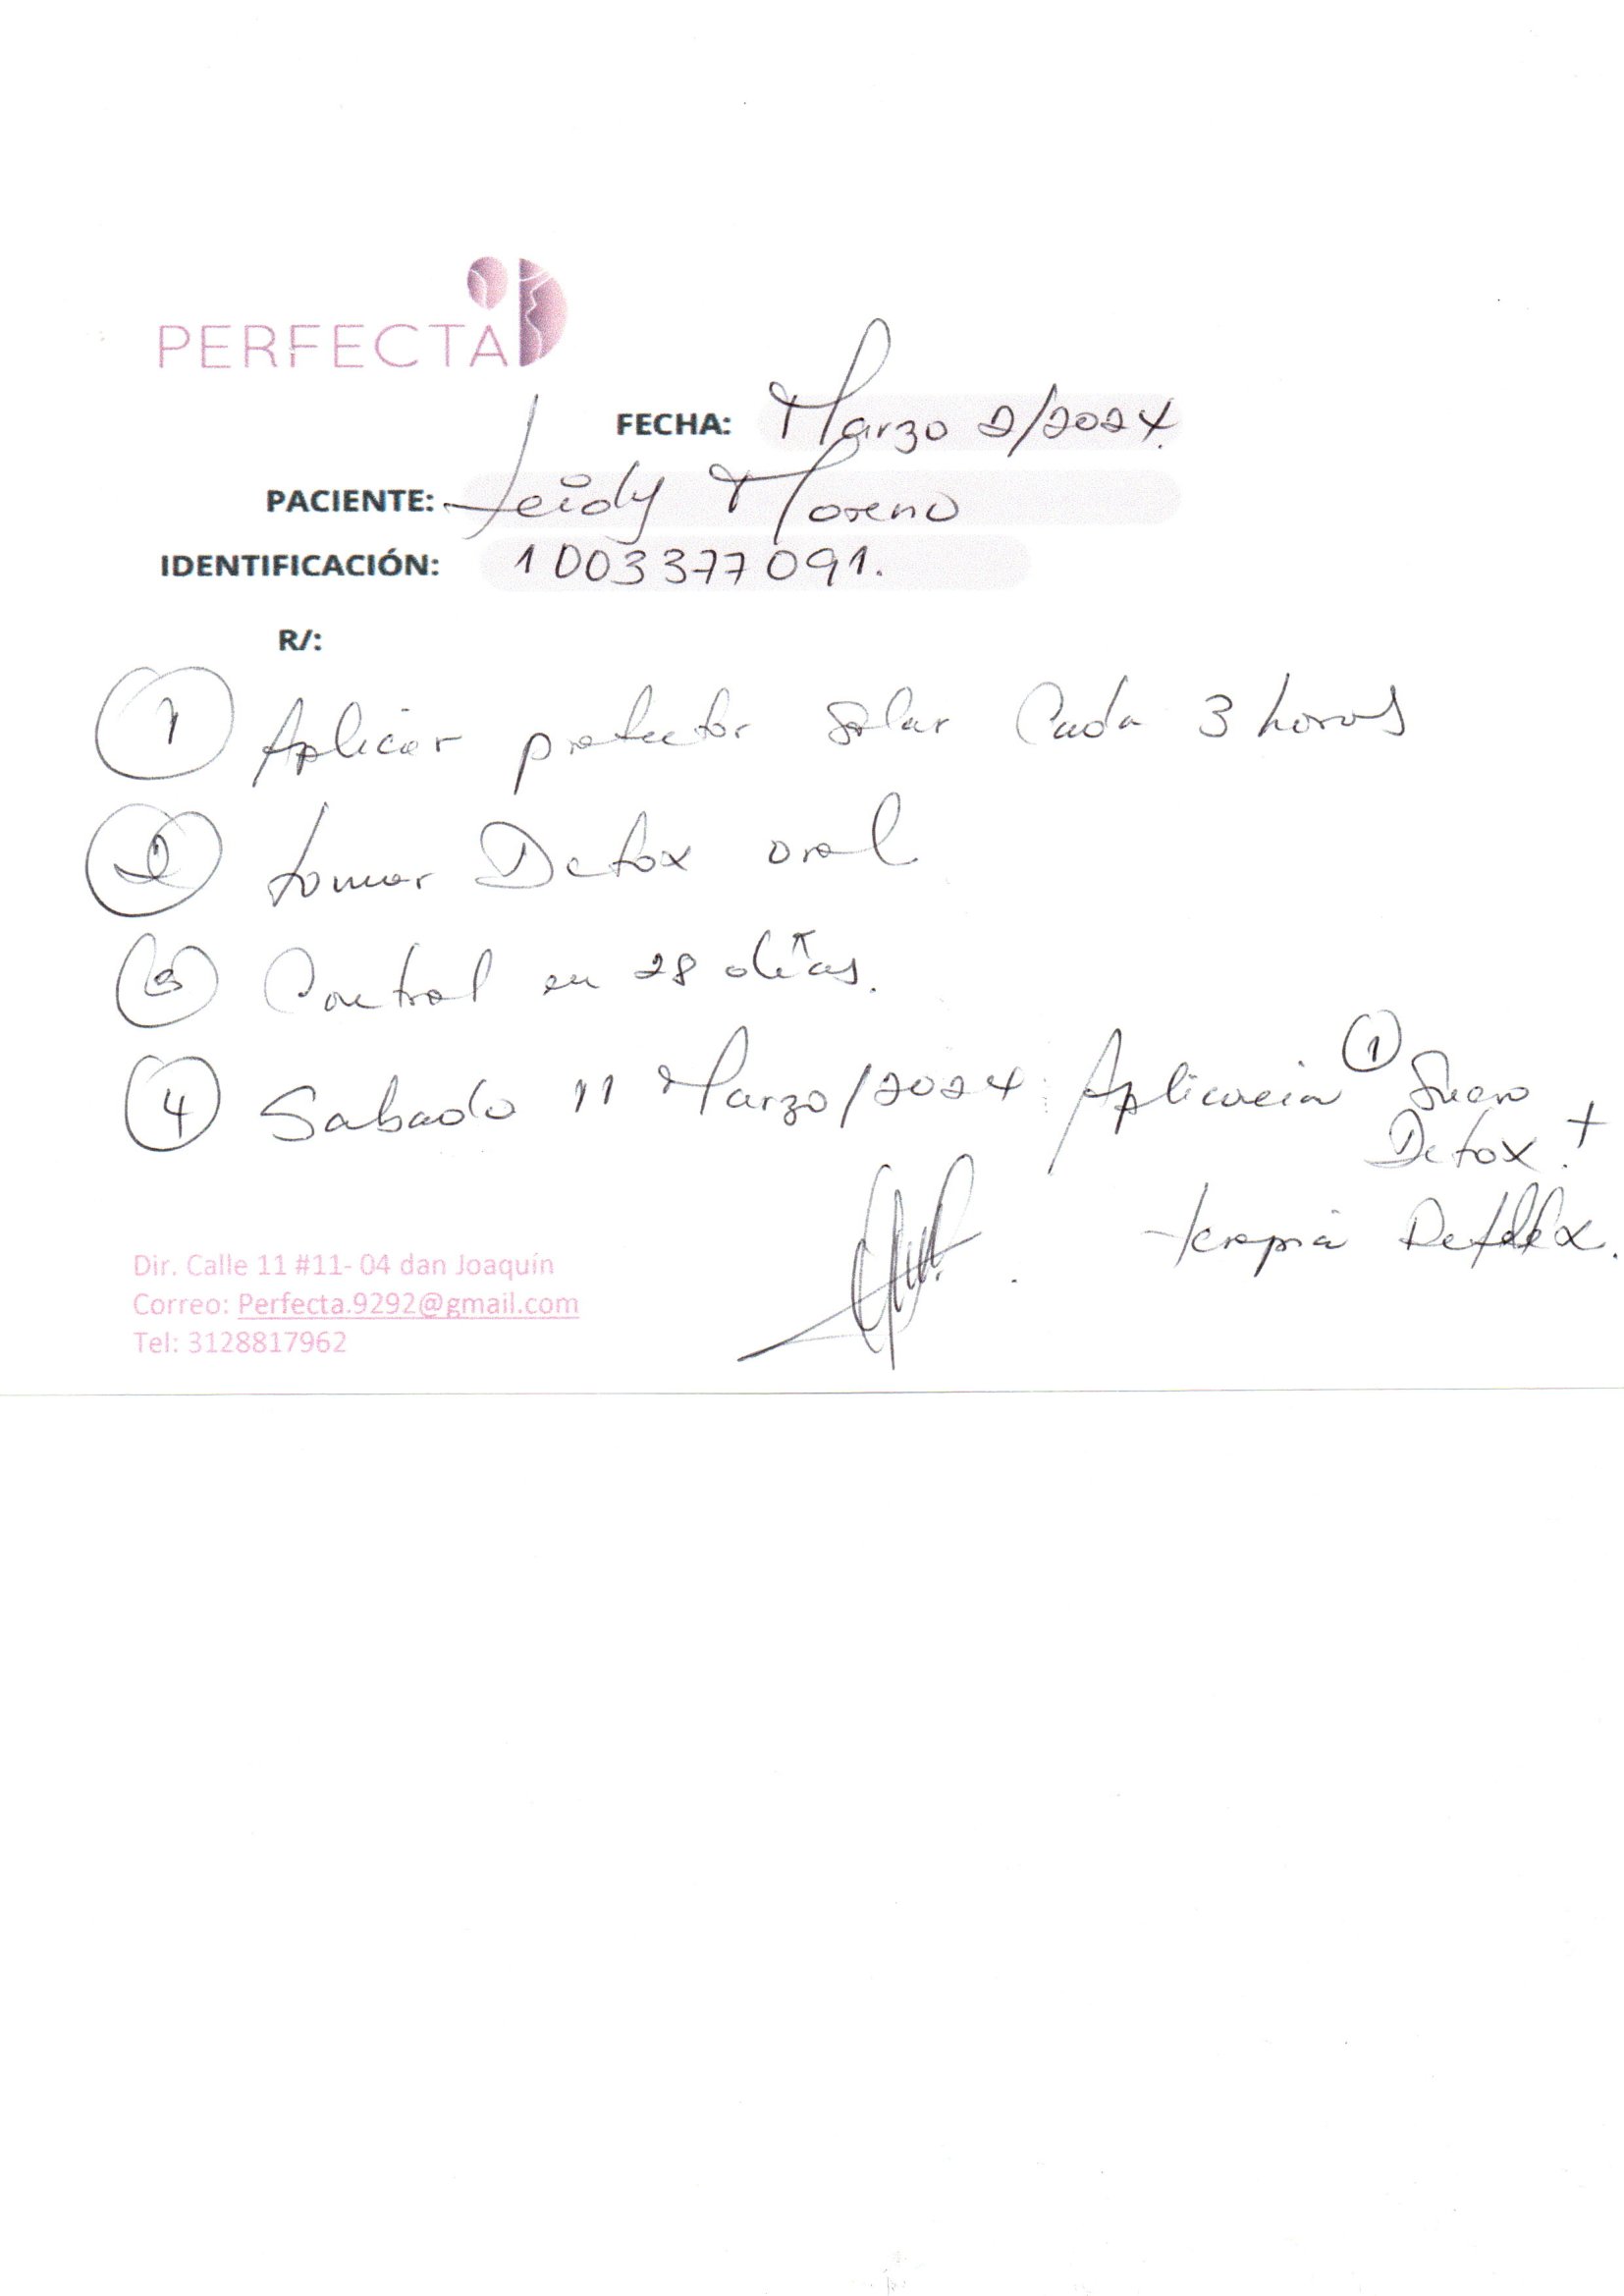 PERFECTA
FECHA: Marzo 2/2024.
PACIENTE: Leidy Moreno
IDENTIFICACIÓN: 1003377091.
R/:
1 Aplicar protector solar Cada 3 horas
2 tomar Detox oral
3 Control en 28 días.
4 Sabado 11 Marzo/2024: Aplicación 1 Suero
Detox. +
terapia Detox.
Dir. Calle 11 #11- 04 dan Joaquín
Correo: Perfecta.9292@gmail.com
Tel: 3128817962